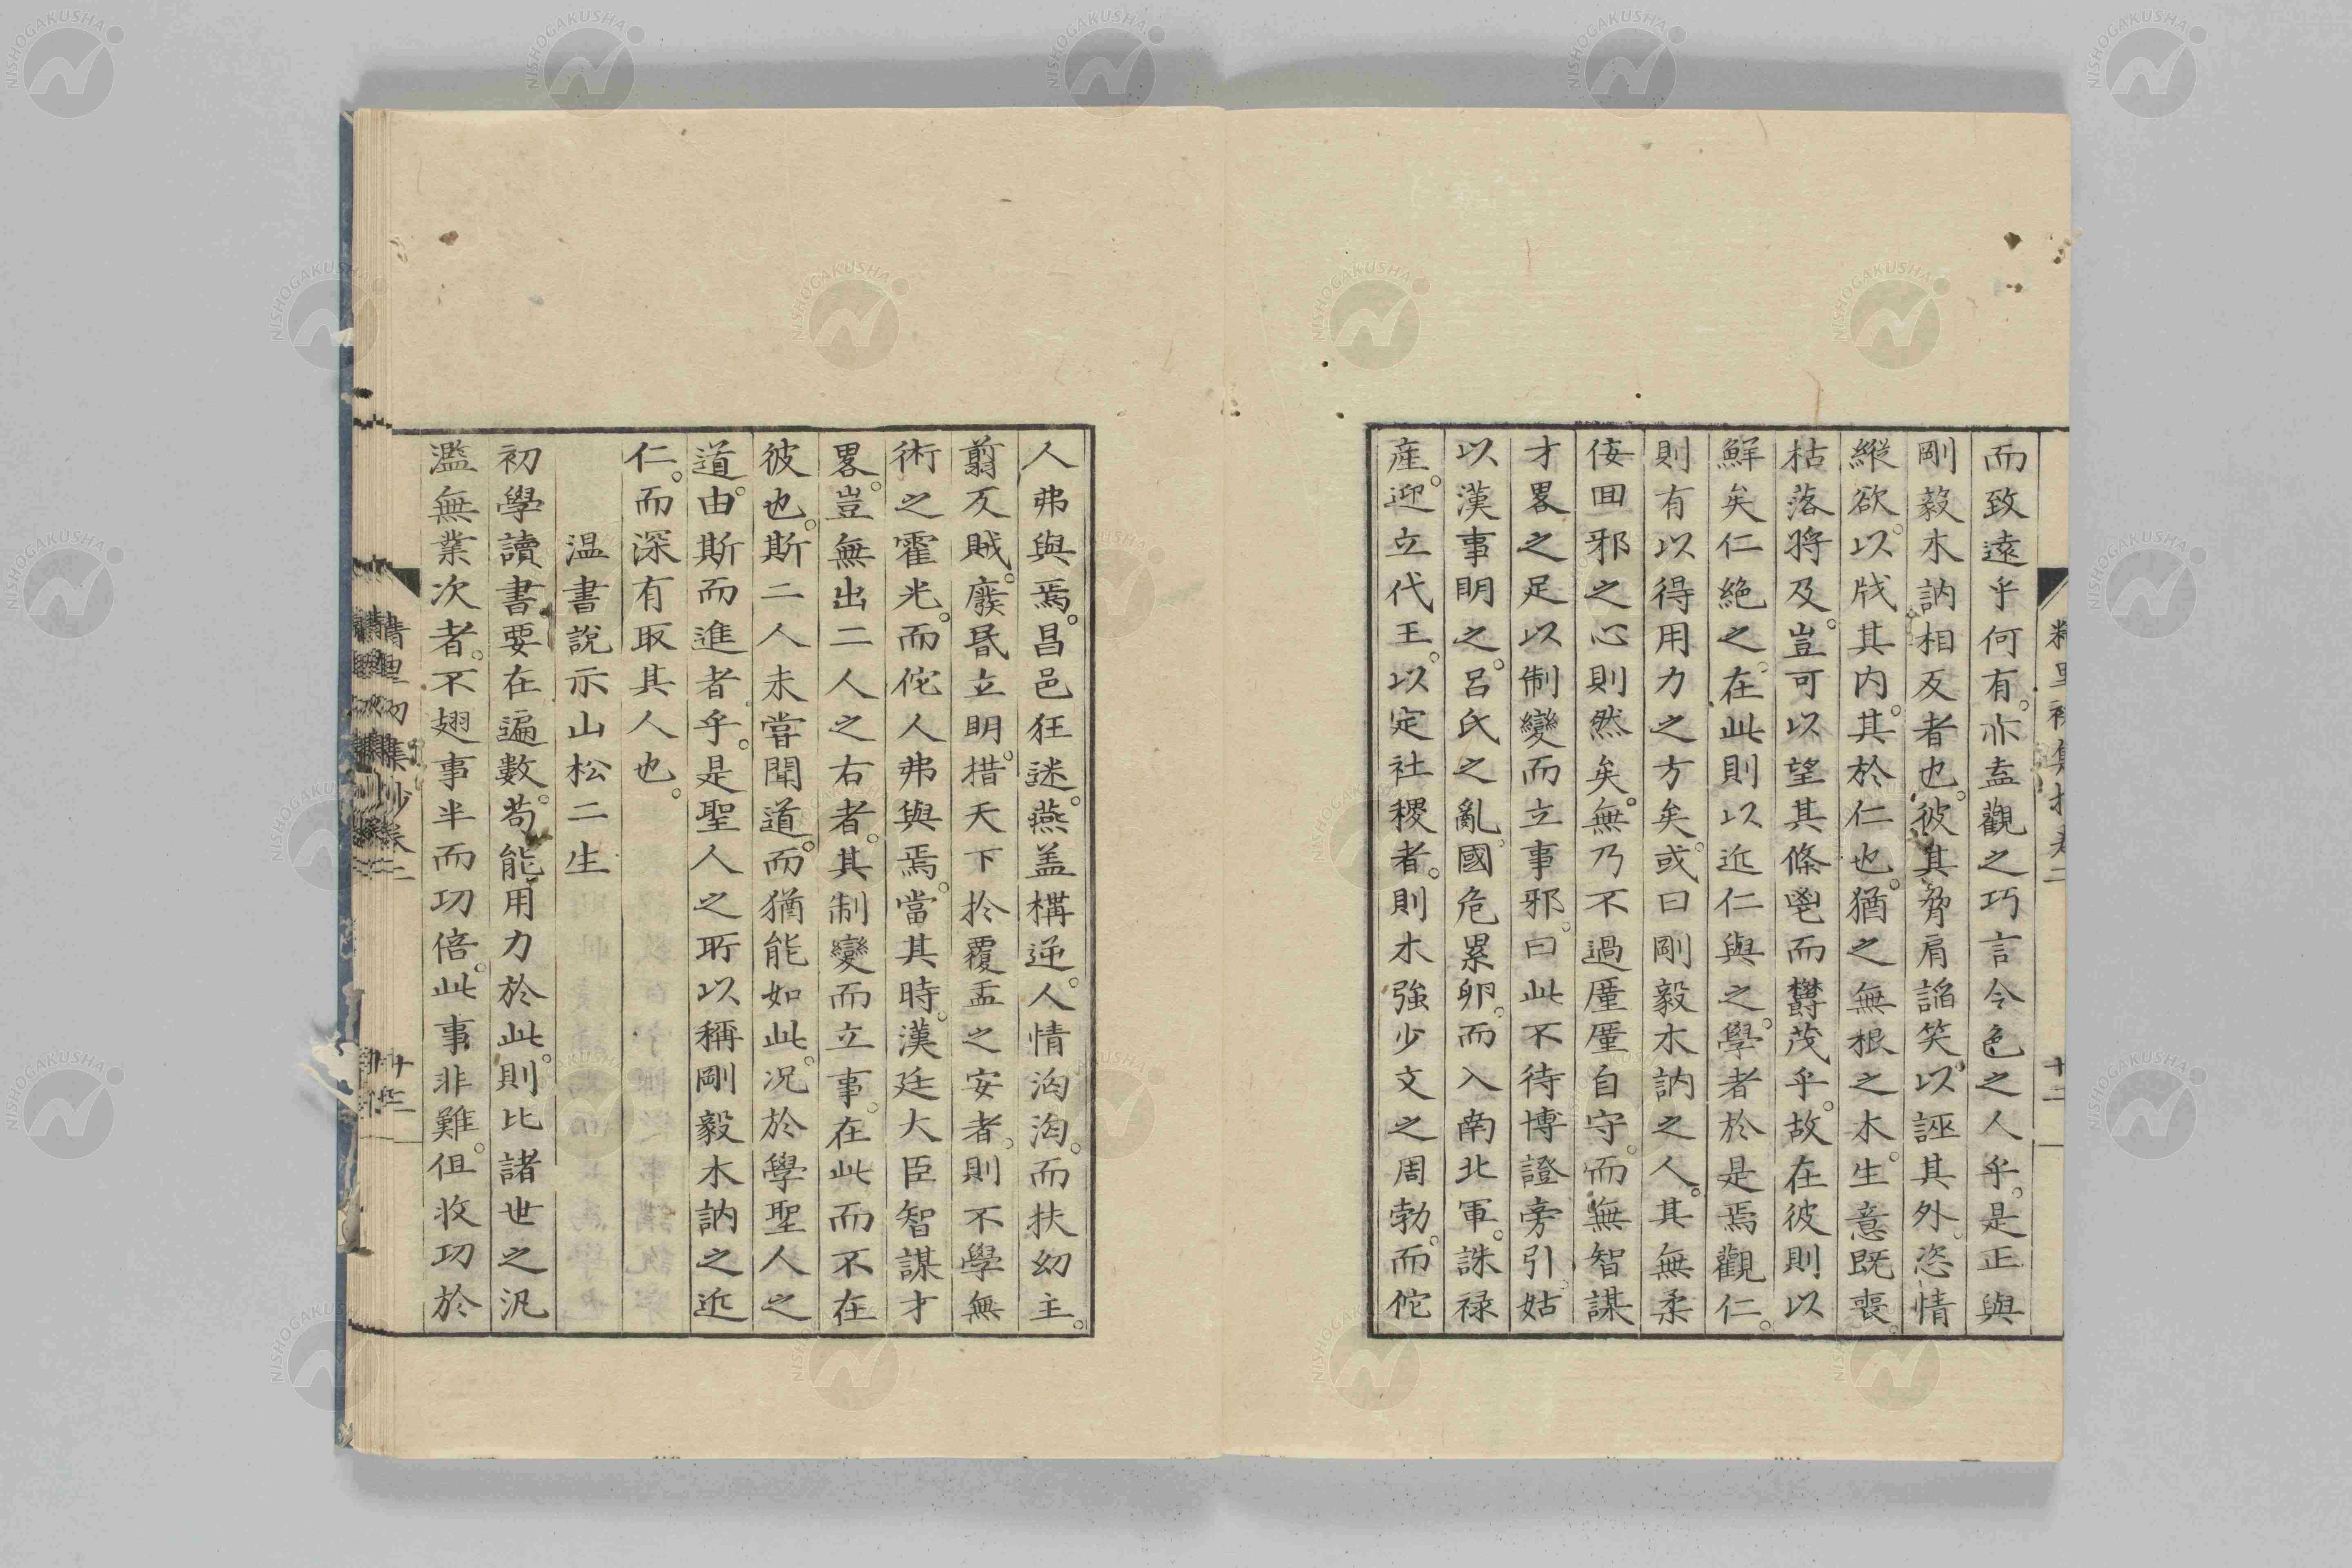 而致遠乎何有。亦盍觀之巧言令色之人乎。是正與
剛毅木訥相反者也。彼其脅肩謟笑。以誣其外。恣情
縱欲。以戕其內。其於仁也。猶之無根之木。生意既喪。
枯落將及。豈可以望其條鬯而欝茂乎。故在彼則以
鮮矣仁絕之。在此則以近仁與之。學者於是焉觀仁。
則有以得用力之方矣。或曰剛毅木訥之人。其無柔
佞囬邪之心則然矣。無乃不過厪厪自守。而無智謀
才畧之足以制變而立事邪。曰此不待博證旁引。姑
以漢事明之。呂氏之亂國危累卵。而入南北軍。誅祿
產。迎立代王。以定社稷者。則木強少文之周勃。而佗
人弗與焉。昌邑狂迷。燕盖構逆。人情洶洶。而扶幼主。
翦仄賊。廢昬立明。措天下於覆盂之安者。則不學無
術之霍光。而佗人弗與焉。當其時。漢廷大臣智謀才
畧。豈無出二人之右者。其制變而立事。在此而不在
彼也。斯二人未嘗聞道。而猶能如此。况於學聖人之
道。由斯而進者乎。是聖人之所以稱剛毅木訥之近
仁。而深有取其人也。
温書說示山松二生
初學讀書要在遍數。苟能用力於此。則比諸世之汎
濫無業次者。不翅事半而功倍。此事非難。但收功於
NISHOGAKUSHA